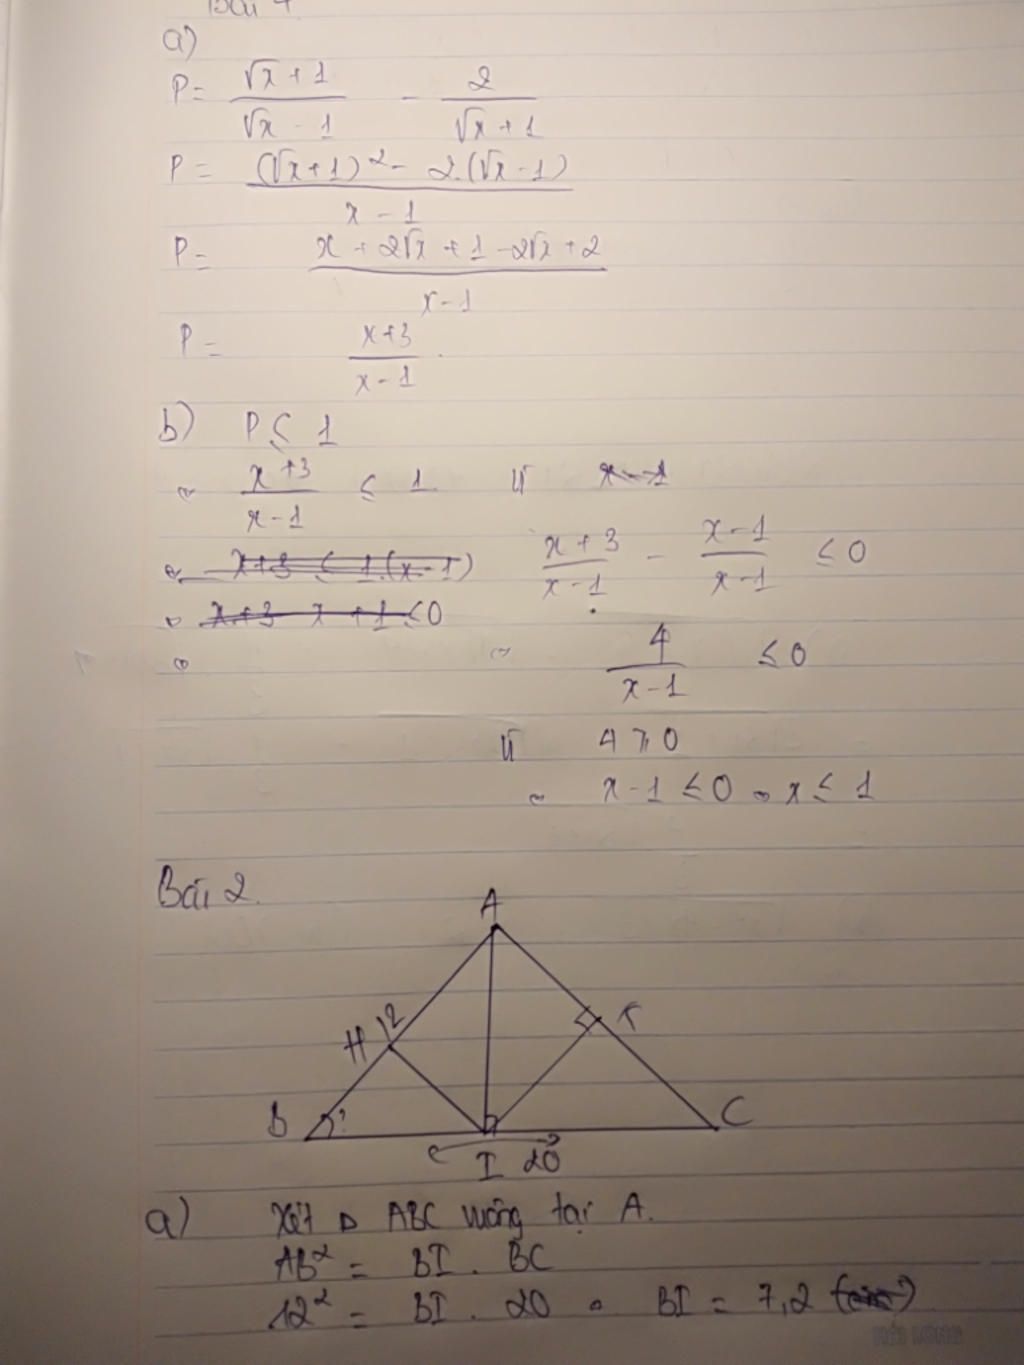 Bài 1
a)
P = (√x + 1)/(√x - 1) - 2/(√x + 1)
P = ((√x+1)² - 2.(√x-1))/(x - 1)
P = (x + 2√x + 1 - 2√x + 2)/(x - 1)
P = (x+3)/(x-1)
b) P ≤ 1
(x+3)/(x-1) ≤ 1
x - 1
x+3 ≤ 1.(x-1)
(x+3)/(x-1) - (x-1)/(x-1) ≤ 0
x+3 x +1 ≤0
4/(x-1) ≤ 0
Vì 4 ≥ 0
x - 1 ≤ 0 x ≤ 1
Bài 2.
A
12
H
K
B ?
C
I 20
a) Xét Δ ABC vuông tại A.
AB² = BI . BC
12² = BI . 20 BI = 7,2